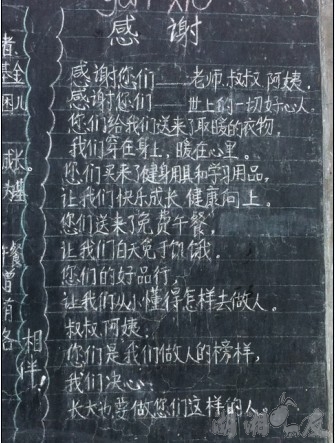 gan xie
感谢
感谢您们——老师.叔叔.阿姨.
感谢您们——世上的一切好心人.
您们给我们送来了取暖的衣物,
我们穿在身上,暖在心里。
您们买来了健身用具和学习用品,
让我们快乐成长 健康向上。
您们送来了免费午餐,
让我们白天免于饥饿。
您们的好品行,
让我们从小懂得怎样去做人。
叔叔.阿姨.
您们是我们做人的榜样,
我们决心:
长大也要做您们这样的人。
者
基金
困儿
成长。
午餐
曾
有
各
相
伴!